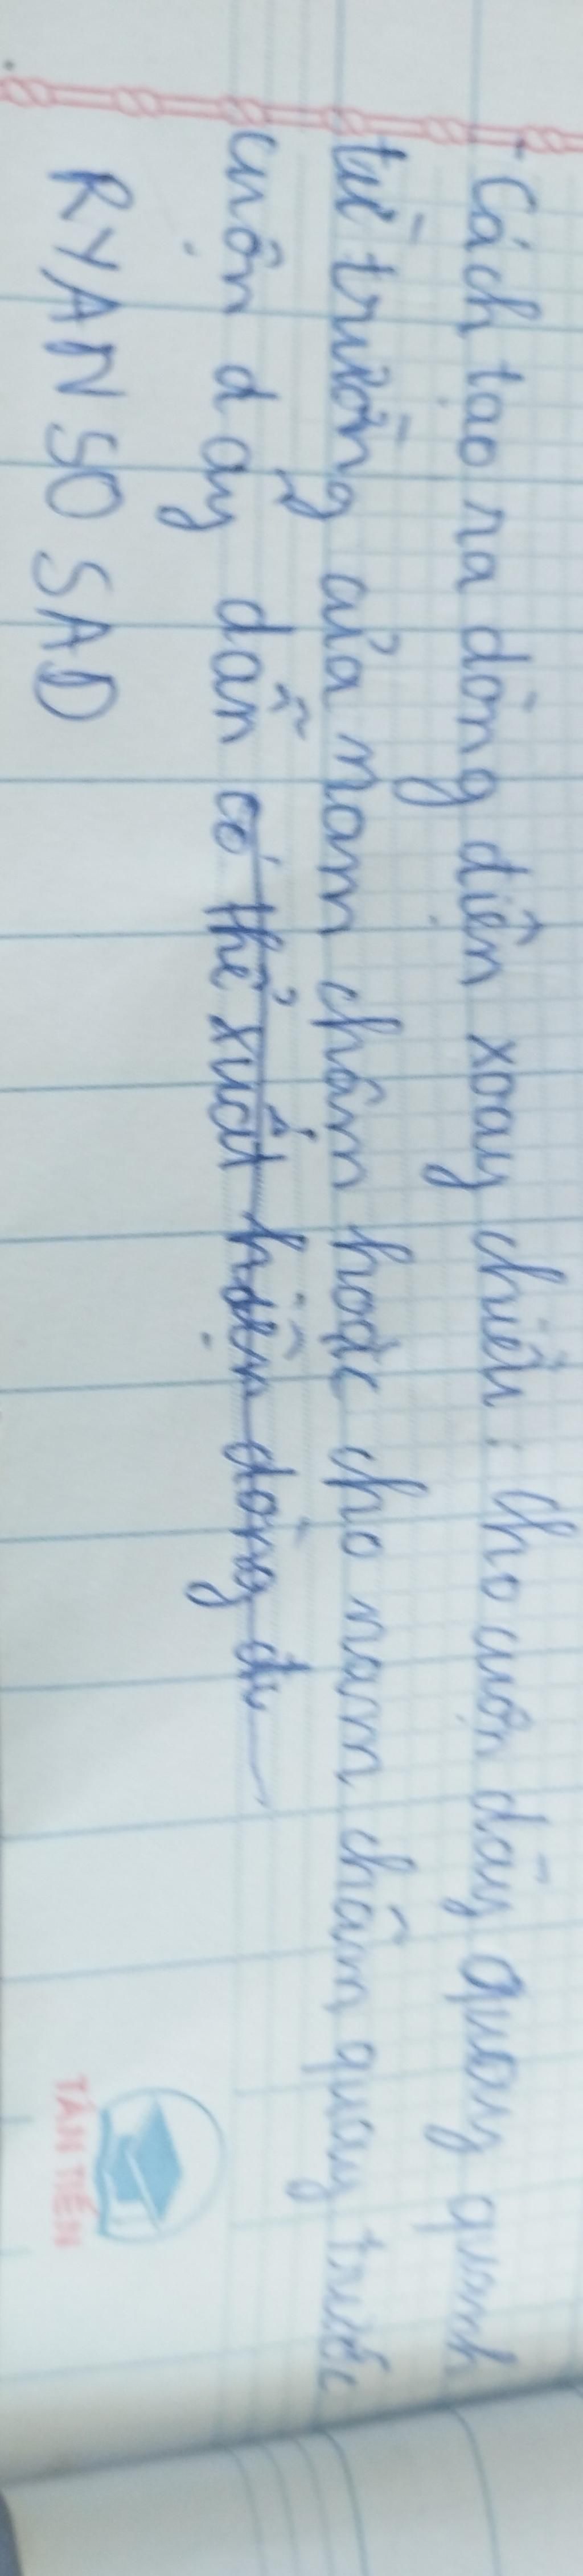 - Cách tạo ra dòng điện xoay chiều: cho cuộn dây quay quanh
từ trường của nam châm hoặc cho nam châm quay trước
cuộn dây dẫn có thể xuất hiện dòng đi
RYAN SO SAD
TÂN TIẾN